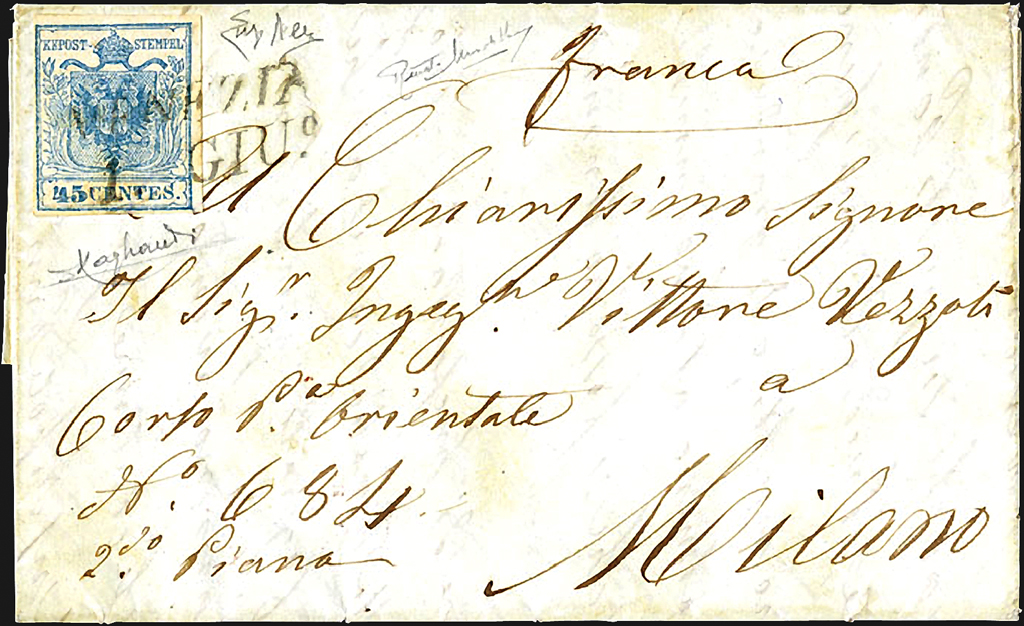 KKPOST-STEMPEL
VENEZIA
1 GIUº
45 CENTES.
franca
Al Chiarissimo Signore
Il Sigr. Ingegr. Vittore Vezzoli
a
Corso Pa. Orientale
Nº. 684.
2do. Piano
Milano